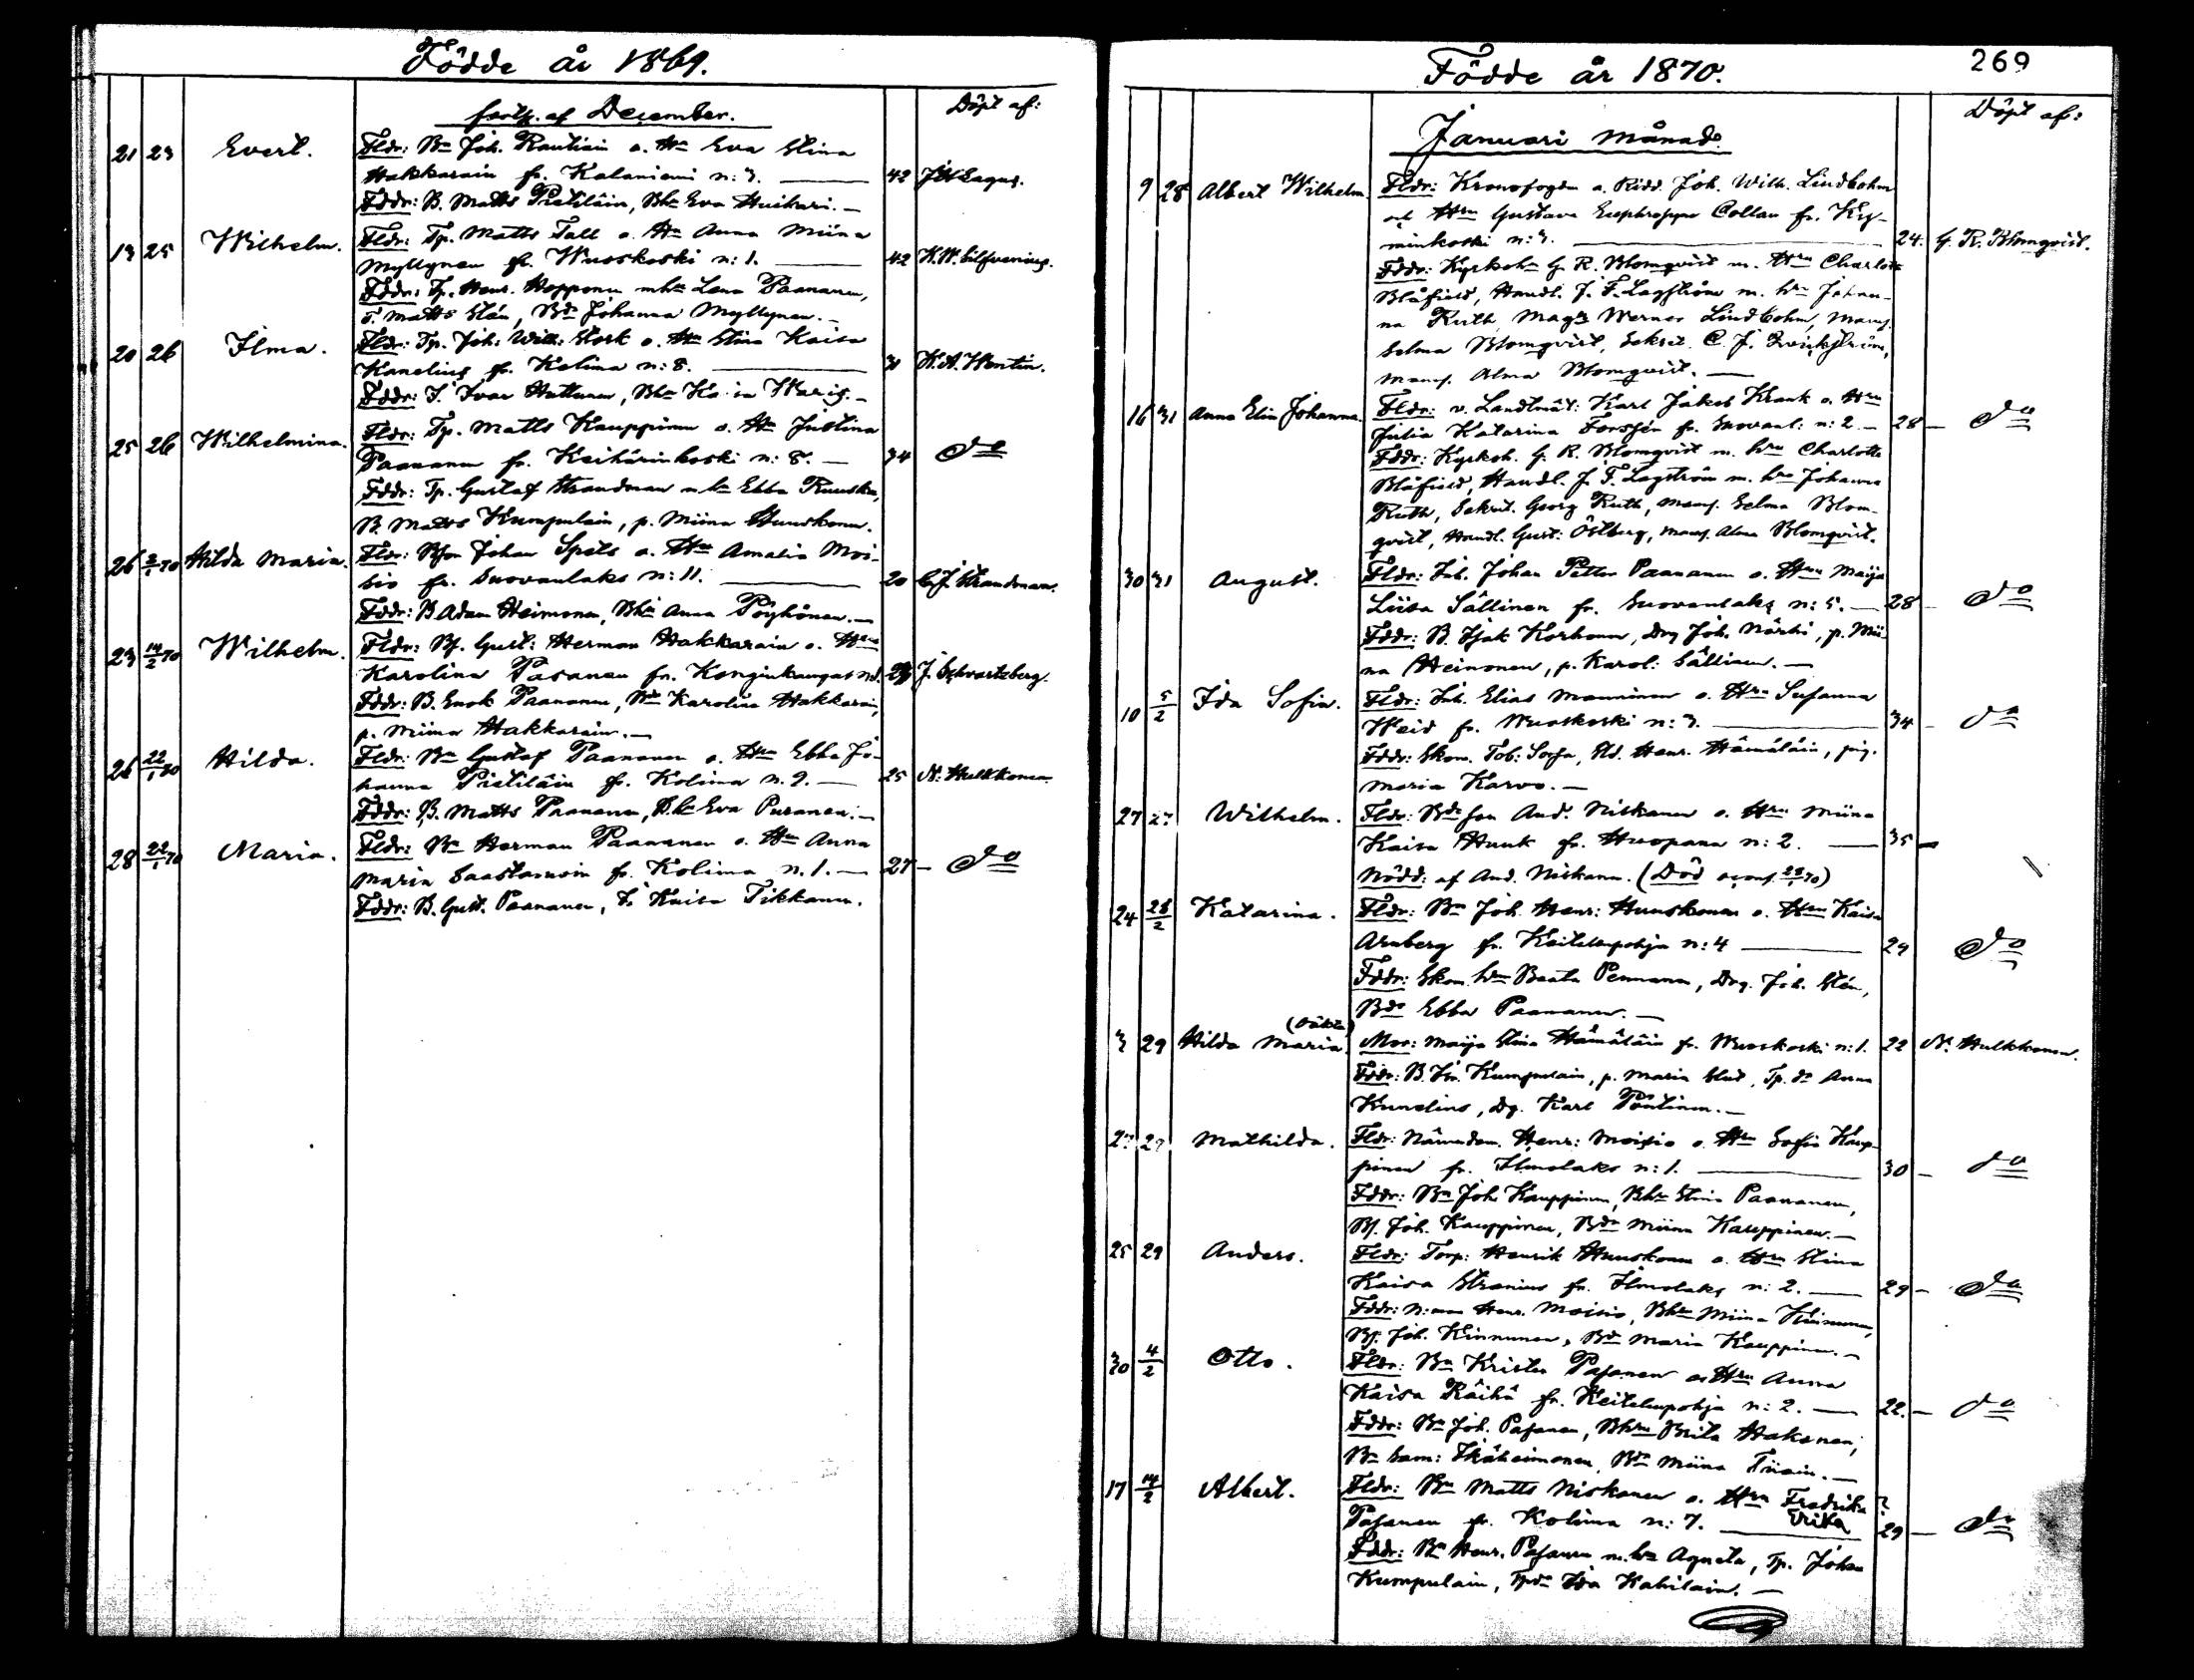 Födde år 1869.
forts. af December.
Döpt af:
21 23 Evert. Fldr: Bn Joh. Rautiain o. Hu Eva Stina
Hakkarain fr. Kalaniemi n: 3. 42
Fddr: B. Matts Pietiläin, Bhu Eva Huikari.
13 25 Wilhelm. Fldr: Tp. Matts Tall o. Hu Anna Miina
Myllynen fr. Wuoskoski n: 1. 42 K.W. Silfvenius.
Fddr: Tp. Henr. Hopponen mhu Lena Paananen,
T. Matts Stén, Bdr Johanna Myllynen.
20 26 Ilma. Fldr: Tp. Joh: Wilh: Stork o. Hu Stina Kaisa
Kanelius fr. Kolima n: 8. 31 K. A. Wentin.
Fddr: I. Ivar Huttunen, Bhu Kaisa Waris.
25 26 Wilhelmina. Fldr: Tp. Matts Kauppinen o. Hu Justina
Paananen fr. Keihärinkoski n: 8. 34 do
Fddr: Tp. Gustaf Strandman m hu Ebba Ruuska,
B. Matts Kumpulain, p. Miina Huuskonen.
26 2/1 70 Hilda Maria. Fldr: Bson Johan Spets o. Hu Amalia Moi-
sio fr. Suovanlaks n: 11. 20 C. J. Strandman.
Fddr: B Adam Heimonen, Bhu Anna Pöyhönen.
23 14/2 70 Wilhelm. Fldr: Bs. Gust: Herman Hakkarain o. Hu
Karolina Pasanen fr. Konginkangas n: J. Schvartzberg.
Fddr: B. Enok Paananen, Bdr Karolina Hakkarain,
p. Miina Hakkarain.
26 22/1 70 Hilda. Fldr: Bn Gustaf Paananen o. Hu Ebba Jo-
hanna Pietiläin fr. Kolima n. 9. 25 N. Hulkkonen.
Fddr: B. Matts Paananen, Bhu Eva Puranen.
28 22/1 70 Maria. Fldr: Bn Herman Paananen o. Hu Anna
Maria Saastamoin fr. Kolima n. 1. 27 do
Fddr: B. Gust. Paananen, I. Kaisa Tikkanen.
269
Födde år 1870.
Döpt af:
Januari månad.
9 28 Albert Wilhelm. Fldr: Kronofogden o. Ridd. Joh. Wilh. Lindbohm
och Hru Gustava Euphrosyne Collan fr. Ky-
minkoski n: 3. 24. G. R. Blomqvist.
Fddr: Kyrkoh. G. R. Blomqvist m. Hru Charlotte
Blåfield, Handl. J. F. Lagström m. hru Johan-
na Ruth, Magr Werner Lindbohm, Mams.
Selma Blomqvist, Sekret. C. J.
Mams. Alma Blomqvist.
16 31 Anna Elin Johanna. Fldr: v. Landtmät: Karl Jakob Krank o. Hru
Julia Katarina Forssén fr. Suovanl: n: 2. 28 do
Fddr: Kyrkoh. G. R. Blomqvist m. hru Charlotte
Blåfield, Handl. J. F. Lagström m. hru Johanna
Ruth, Sekret. Georg Ruth, Mams. Selma Blom-
qvist, Handl. Gust: Östberg, Mams. Alma Blomqvist.
30 31 August. Fldr: Inh. Johan Petter Paananen o. Hru Maija
Liisa Sällinen fr. Suovanlaks n: 5. 28 do
Fddr: B. Isak Korhonen, Drg Joh. Närhi, p. Mii-
na Heinonen, p. Karol: Sällinen.
10 5/2 Ida Sofia. Fldr: Inh. Elias Manninen o. Hru Susanna
Weid fr. Wuoskoski n: 3. 34 do
Fddr: Skom. Tob: Sofia, Sld. Henr. Hämäläin, pig.
Maria Karvo.
27 27 Wilhelm. Fldr: Bdeson And. Niskanen o. Hru Miina
Kaisa Hunk fr. Huopana n: 2. 35
Nödd: af And. Niskanen. (Död
24 28/2 Katarina. Fldr: Bn Joh. Henr: Huuskonen o. Hru Kaisa
Arnberg fr. Keitelepohja n: 4 29 do
Fddr: Skom. hru Beata Pennanen, Drg. Joh. Stén,
Bdr Ebba Paananen.
(Oäkta)
3 29 Hilda Maria. Mor: Maija Stina Hämäläin fr. Wuoskoski n: 1. 22 N. Hulkkonen.
Fddr: B. Kumpulain, p. Maria Slut, Tp. dr Anna
Kunelius, Dg. Karl Pöntinen.
27 29 Mathilda. Fldr: Nämndem. Henr: Moisio o. Hru Sofia Kaup-
pinen fr. Ilmolaks n: 1. 30 do
Fddr: Bn Joh Kauppinen, Bhu Stina Paananen,
Bs. Joh. Kauppinen, Bdr Miina Kauppinen.
25 29 Anders. Fldr: Torp: Henrik Huuskonen o. Hru Stina
Kaisa Stranius fr. Ilmolaks n: 2. 29 do
Fddr: N:man Henr. Moisio, Bhu Miina Kinnunen,
Bs. Joh. Kinnunen, Bdr Maria Kauppinen.
30 4/2 Otto. Fldr: Bn Krister Pasanen o. Hru Anna
Kaisa Räihä fr. Keitelepohja n: 2. 22. do
Fddr: Bn Joh. Pasanen, Bhru Brita Hakanen,
Bn Sam: Ikäheimonen, Bdr Miina Tiiain.
17 14/2 Albert. Fldr: Bn Matts Niskanen o. Hru Fredrika ?
Pasanen fr. Kolima n: 7. Vrika 29 do
Fddr: Bn Henr. Pasanen m. hu Agneta, Tp. Johan
Kumpulain, Tpdr Ida Kahilain.